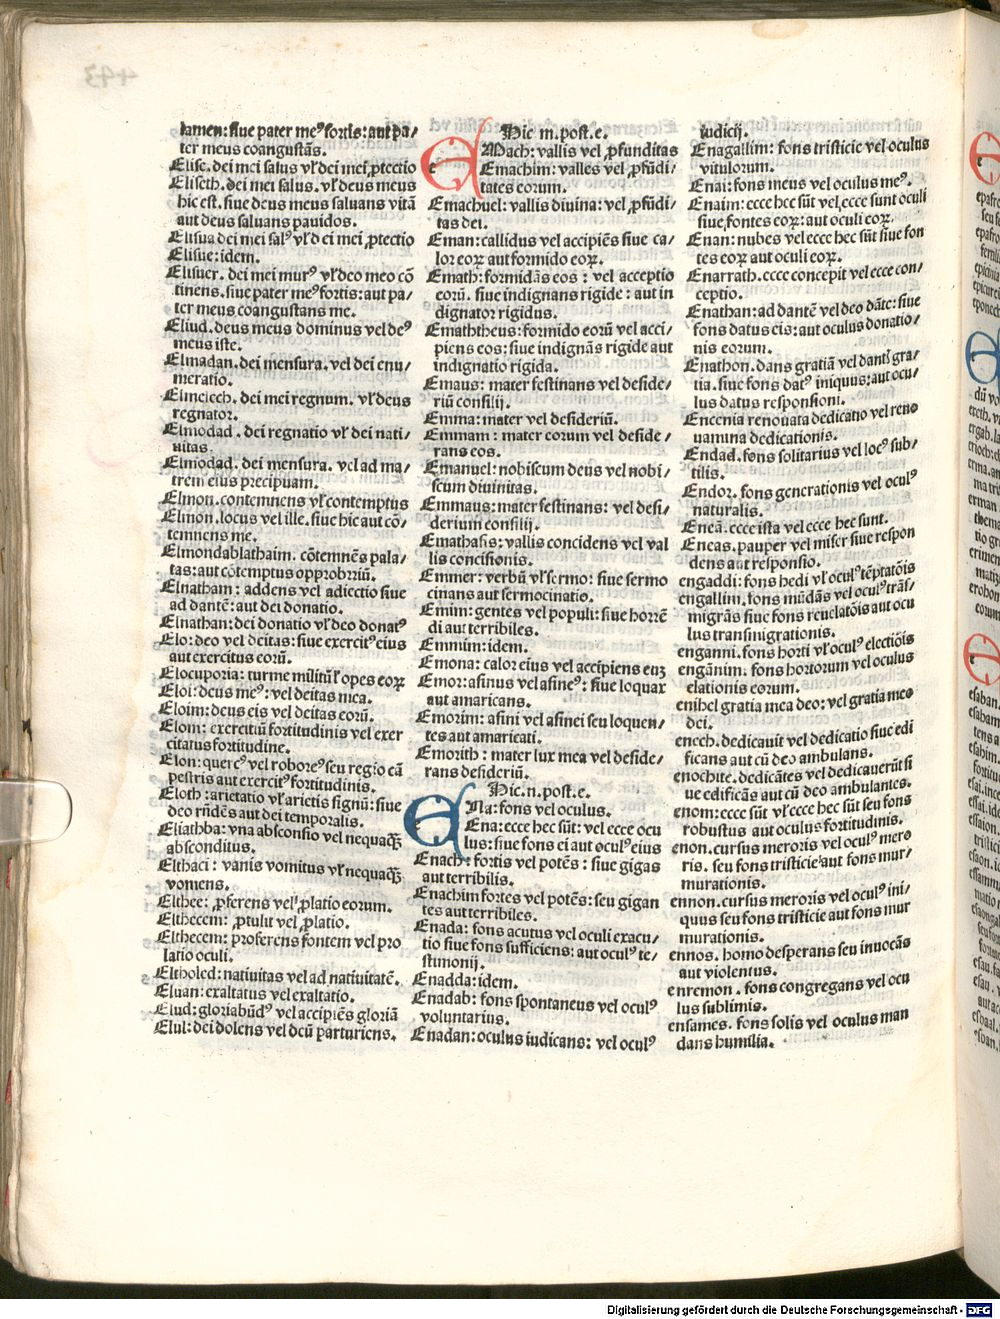 lamen: siue pater meꝰ fortis: aut pa/
ter meus coangustās.
Elise. dei mei salus vł dei mei ꝓtectio
Eliseth. dei mei salus. vł deus meus
hic est. siue deus meus saluans vitā
aut deus saluans pauidos.
Elisua dei mei salꝰ vł dei mei ꝓtectio
Elisue: idem.
Elisuer. dei mei murꝰ vł deo meo cō
tinens. siue pater meꝰ fortis: aut pa/
ter meus coangustans me.
Eliud. deus meus dominus vel deꝰ
meus iste.
Elmadan. dei mensura. vel dei enu/
meratio.
Elmelech. dei mei regnum. vł deus
regnator.
Elmodad. dei regnatio vł dei nati/
uitas.
Elmodad. dei mensura. vel ad ma/
trem eius precipuam.
Elmon. contemnens vł contemptus
Elmon. locus vel ille. siue hic aut cō/
temnens me.
Elmondablathaim. cōtemnēs pala/
tas: aut cōtemptus opprobriū.
Elnatham: addens vel adiectio siue
ad dantē: aut dei donatio.
Elnathan: dei donatio vł deo donatꝰ
Elo: deo vel deitas: siue exercitꝰ eius
aut exercitus eorū.
Elocuporia: turme militū ł opes eoꝝ
Eloi: deus meꝰ: vel deitas mea.
Eloim: deus eis vel deitas eorū.
Elom: exercitiū fortitudinis vel exer
citatus fortitudine.
Elon: quercꝰ vel roboreꝰ seu regio cā
pestris aut exercitꝰ fortitudinis.
Eloth: arietatio vł arietis signū: siue
deo rñdēs aut dei temporalis.
Eliathba: vna absconsio vel nequaꝗ̄
absconditus.
Elthaci: vanis vomitus vł nequaꝗ̄
vomens.
Elthee: ꝓferens vel ꝓlatio eorum.
Elthecem: ꝓtulit vel ꝓlatio.
Elthecem: proferens fontem vel pro
latio oculi.
Eltholed: natiuitas vel ad natiuitatē.
Eluan: exaltatus vel exaltatio.
Elud: gloriabūdꝰ vel accipiēs gloriā
Elul: dei dolens vel deū parturiens.
Hic m. post. e.
EMach: vallis vel ꝓfunditas
Emachim: valles vel ꝓfūdi/
tates eorum.
Emachuel: vallis diuina: vel ꝓfūdi/
tas dei.
Eman: callidus vel accipiēs siue ca/
lor eoꝝ aut formido eoꝝ.
Emath: formidās eos: vel acceptio
eorū. siue indignans rigide: aut in
dignator rigidus.
Emaththeus: formido eorū vel acci/
piens eos: siue indignās rigide aut
indignatio rigida.
Emaus: mater festinans vel deside/
riū consilij.
Emma: mater vel desideriū.
Emmam: mater eorum vel deside/
rans eos.
Emanuel: nobiscum deus vel nobi/
scum diuinitas.
Emmaus: mater festinans: vel desi/
derium consilij.
Emathasis: vallis concidens vel val
lis concisionis.
Emmer: verbū vł sermo: siue sermo
cinans aut sermocinatio.
Emim: gentes vel populi: siue horrē
di aut terribiles.
Emmim: idem.
Emona: calor eius vel accipiens euꝫ
Emor: asinus vel asineꝰ: siue loquax
aut amaricans.
Emorim: asini vel asinei seu loquen/
tes aut amaricati.
Emorith: mater lux mea vel deside/
rans desideriū.
Hic. n. post. e.
ENa: fons vel oculus.
Ena: ecce hec sūt: vel ecce ocu
lus: siue fons ei aut oculꝰ eius
Enach: fortis vel potēs: siue gigas
aut terribilis.
Enachim fortes vel potēs: seu gigan
tes aut terribiles.
Enada: fons acutus vel oculi exacu/
tio siue fons sufficiens: aut oculꝰ te/
stimonij.
Enadda: idem.
Enadab: fons spontaneus vel oculꝰ
voluntarius.
Enadan: oculus iudicans: vel oculꝰ
iudicij.
Enagallim: fons tristicie vel oculus
vitulorum.
Enai: fons meus vel oculus meꝰ.
Enaim: ecce hec sūt vel ecce sunt oculi
siue fontes eoꝝ: aut oculi eoꝝ.
Enan: nubes vel ecce hec sūt siue fon
tes eoꝝ aut oculi eoꝝ.
Enarrath. ecce concepit vel ecce con/
ceptio.
Enathan: ad dantē vel deo dāte: siue
fons datus eis: aut oculus donatio/
nis eorum.
Enathon. dans gratiā vel dantꝭ gra/
tia. siue fons datꝰ iniquus: aut ocu/
lus datus responsioni.
Encenia renouata dedicatio vel reno
uamina dedicationis.
Endad. fons solitarius vel locꝰ sub/
tilis.
Endor. fons generationis vel oculꝰ
naturalis.
Eneā. ecce ista vel ecce hec sunt.
Eneas. pauper vel miser siue respon
dens aut responsio.
engaddi: fons hedi vł oculꝰ tēptatōis
engallim. fons mūdās vel oculꝰ trās/
migrās siue fons reuelatōis aut ocu
lus transmigrationis.
enganni. fons horti vł oculꝰ electiōis
engānim: fons hortorum vel oculus
elationis eorum.
enihel gratia mea deo: vel gratia mea
dei.
enoch. dedicauit vel dedicatio siue edi
ficans aut cū deo ambulans.
enochite. dedicātes vel dedicauerūt si
ue edificās aut cū deo ambulantes.
enom: ecce sūt vł ecce hec sūt seu fons
robustus aut oculus fortitudinis.
enon. cursus meroris vel oculꝰ mero
ris. seu fons tristicie aut fons mur/
murationis.
ennon. cursus meroris vel oculꝰ ini/
quus seu fons tristicie aut fons mur
murationis.
ennos. homo desperans seu inuocās
aut violentus.
enremon. fons congregans vel ocu
lus sublimis.
ensames. fons solis vel oculus man
dans humilia.
Digitalisierung gefördert durch die Deutsche Forschungsgemeinschaft - DFG